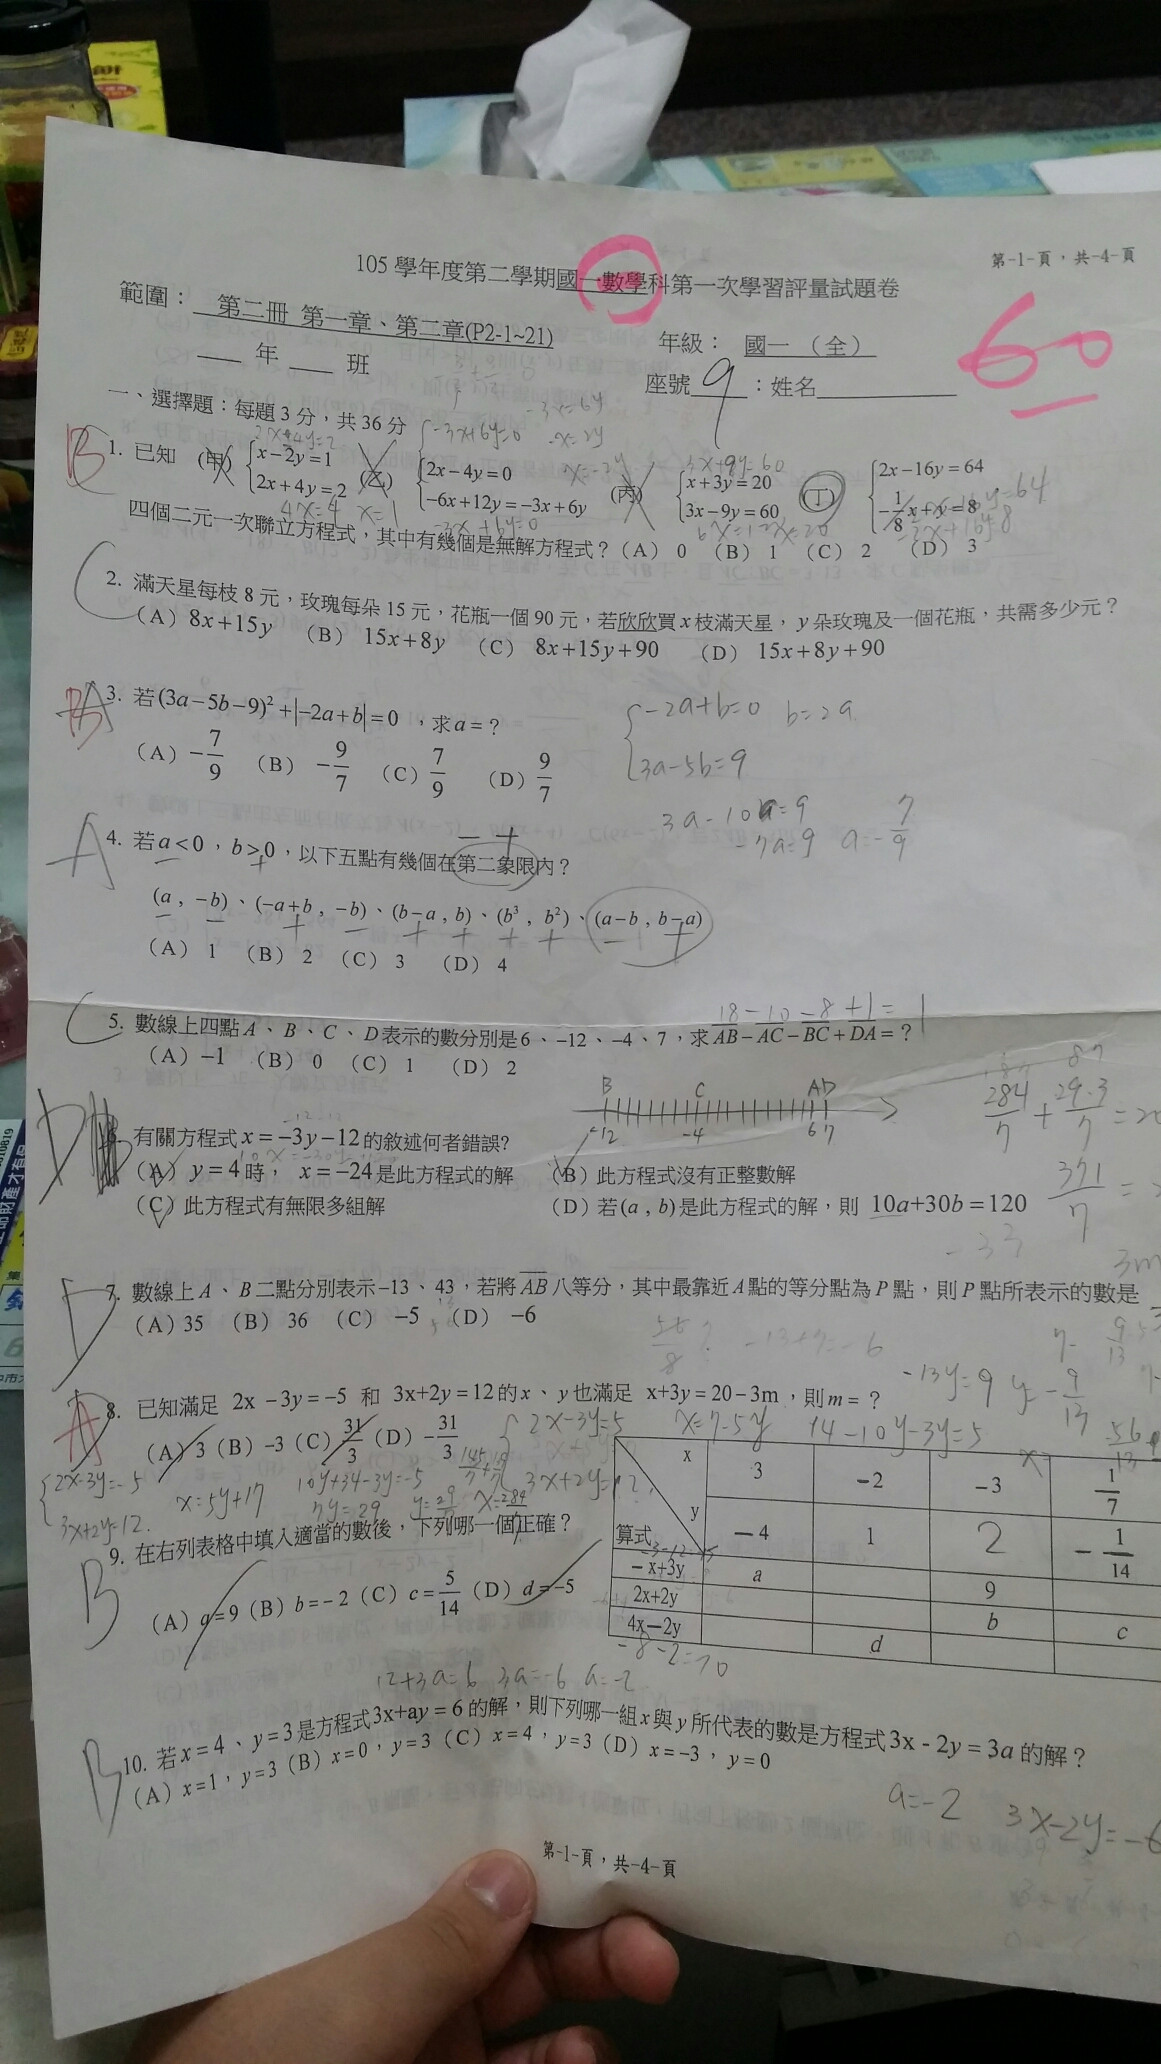 第-1-頁，共-4-頁
105 學年度第二學期國一數學科第一次學習評量試題卷
範圍： 第二冊 第一章、第二章(P2-1~21)
年級： 國一 （全）
60
___ 年 ___ 班
座號 9 ：姓名
一、選擇題：每題 3 分，共 36 分
2x+4y=2
-3x+6y=0
-3x=6y
-x=2y
B
1. 已知 (甲) x-2y=1 2x+4y=2 (乙) 2x-4y=0 -6x+12y=-3x+6y (丙) x+3y=20 3x-9y=60 (丁) 2x-16y=64 -1/8x+y=8
4x=4 x=1
-3x+6y=0
3x+9y=60
四個二元一次聯立方程式，其中有幾個是無解方程式？（A） 0 （B） 1 （C） 2 （D） 3
C
2. 滿天星每枝 8 元，玫瑰每朵 15 元，花瓶一個 90 元，若欣欣買 x 枝滿天星， y 朵玫瑰及一個花瓶，共需多少元？
（A）8x+15y （B） 15x+8y （C） 8x+15y+90 （D） 15x+8y+90
B
3. 若(3a-5b-9)²+|-2a+b|=0 ，求a=？
-2a+b=0 b=2a
3a-5b=9
（A）-7/9 （B） -9/7 （C）7/9 （D）9/7
3a-10a=9
-7a=9 a=-7/9
A
4. 若a<0，b>0，以下五點有幾個在第二象限內？
(a , -b)、(-a+b , -b)、(b-a , b)、(b³ , b²)、(a-b , b-a)
（A） 1 （B） 2 （C） 3 （D） 4
C
18-10-8+1=1
5. 數線上四點 A、B、C、D 表示的數分別是 6、-12、-4、7，求 AB-AC-BC+DA=？
（A）-1 （B）0 （C）1 （D）2
B C A D
-12 -4 6 7
D
6. 有關方程式 x=-3y-12 的敘述何者錯誤?
（A） y=4 時， x=-24 是此方程式的解 （B）此方程式沒有正整數解
（C）此方程式有無限多組解 （D）若(a , b)是此方程式的解，則 10a+30b=120
284/7 + 29·3/7
371/7
D
7. 數線上 A、B 二點分別表示-13、43，若將 AB 八等分，其中最靠近 A 點的等分點為 P 點，則 P 點所表示的數是
（A）35 （B） 36 （C） -5 （D） -6
56/8
-13+7=-6
-13y=9 y=-9/13
A
8. 已知滿足 2x -3y=-5 和 3x+2y=12 的 x、y 也滿足 x+3y=20-3m，則 m=？
（A）3（B）-3（C）31/3（D）-31/3
2x-3y=5 x=7-5y 14-10y-3y=5
2x-3y=-5
3x+2y=12
x=5y+17
10y+34-3y=-5
7y=29 y=29/7 x=284/7
B
9. 在右列表格中填入適當的數後，下列哪一個正確？
（A）a=9（B）b=-2（C）c=5/14（D）d=-5
x 3 -2 -3 1/7
y -4 1 2 -1/14
算式
-x+3y a
2x+2y 9
4x-2y d b c
-3-12=-15
-8-2=-10
12+3a=6 3a=-6 a=-2
B
10. 若 x=4、y=3 是方程式 3x+ay=6 的解，則下列哪一組 x 與 y 所代表的數是方程式 3x - 2y = 3a 的解？
（A）x=1，y=3（B）x=0，y=3（C）x=4，y=3（D）x=-3，y=0
a=-2 3x-2y=-6
第-1-頁，共-4-頁